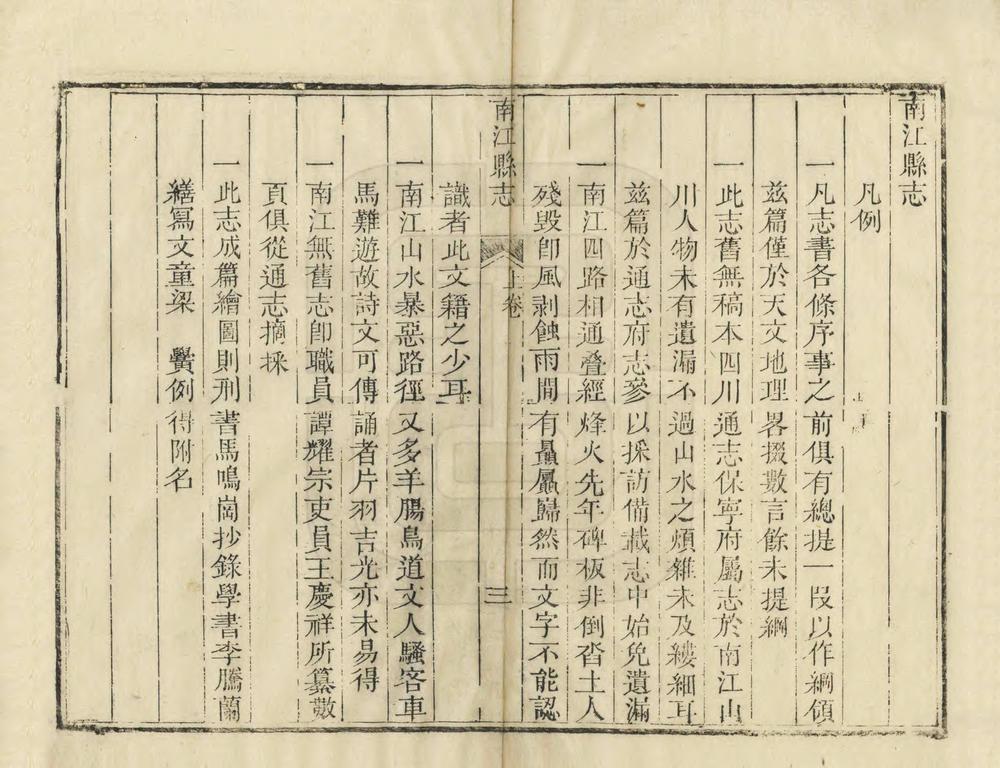 南江縣志
凡例
一凡志書各條序事之前俱有總提一段以作綱領
茲篇僅於天文地理畧掇數言餘未提綱
一此志舊無稿本四川通志保寧府屬志於南江山
川人物未有遺漏不過山水之煩雜未及縷細耳
茲篇於通志府志參以採訪備載志中始免遺漏
一南江四路相通疊經烽火先年碑板非倒沓土人
殘毀卽風剥蝕雨間有贔屭巋然而文字不能認
南江縣志
上卷
三
識者此文籍之少耳
一南江山水暴惡路徑又多羊腸鳥道文人騷客車
馬難遊故詩文可傳誦者片羽吉光亦未易得
一南江無舊志卽職員譚耀宗吏員王慶祥所纂數
頁俱從通志摘採
一此志成篇繪圖則刑書馬鳴崗抄錄學書李騰蘭
繕寫文童梁 黌例得附名